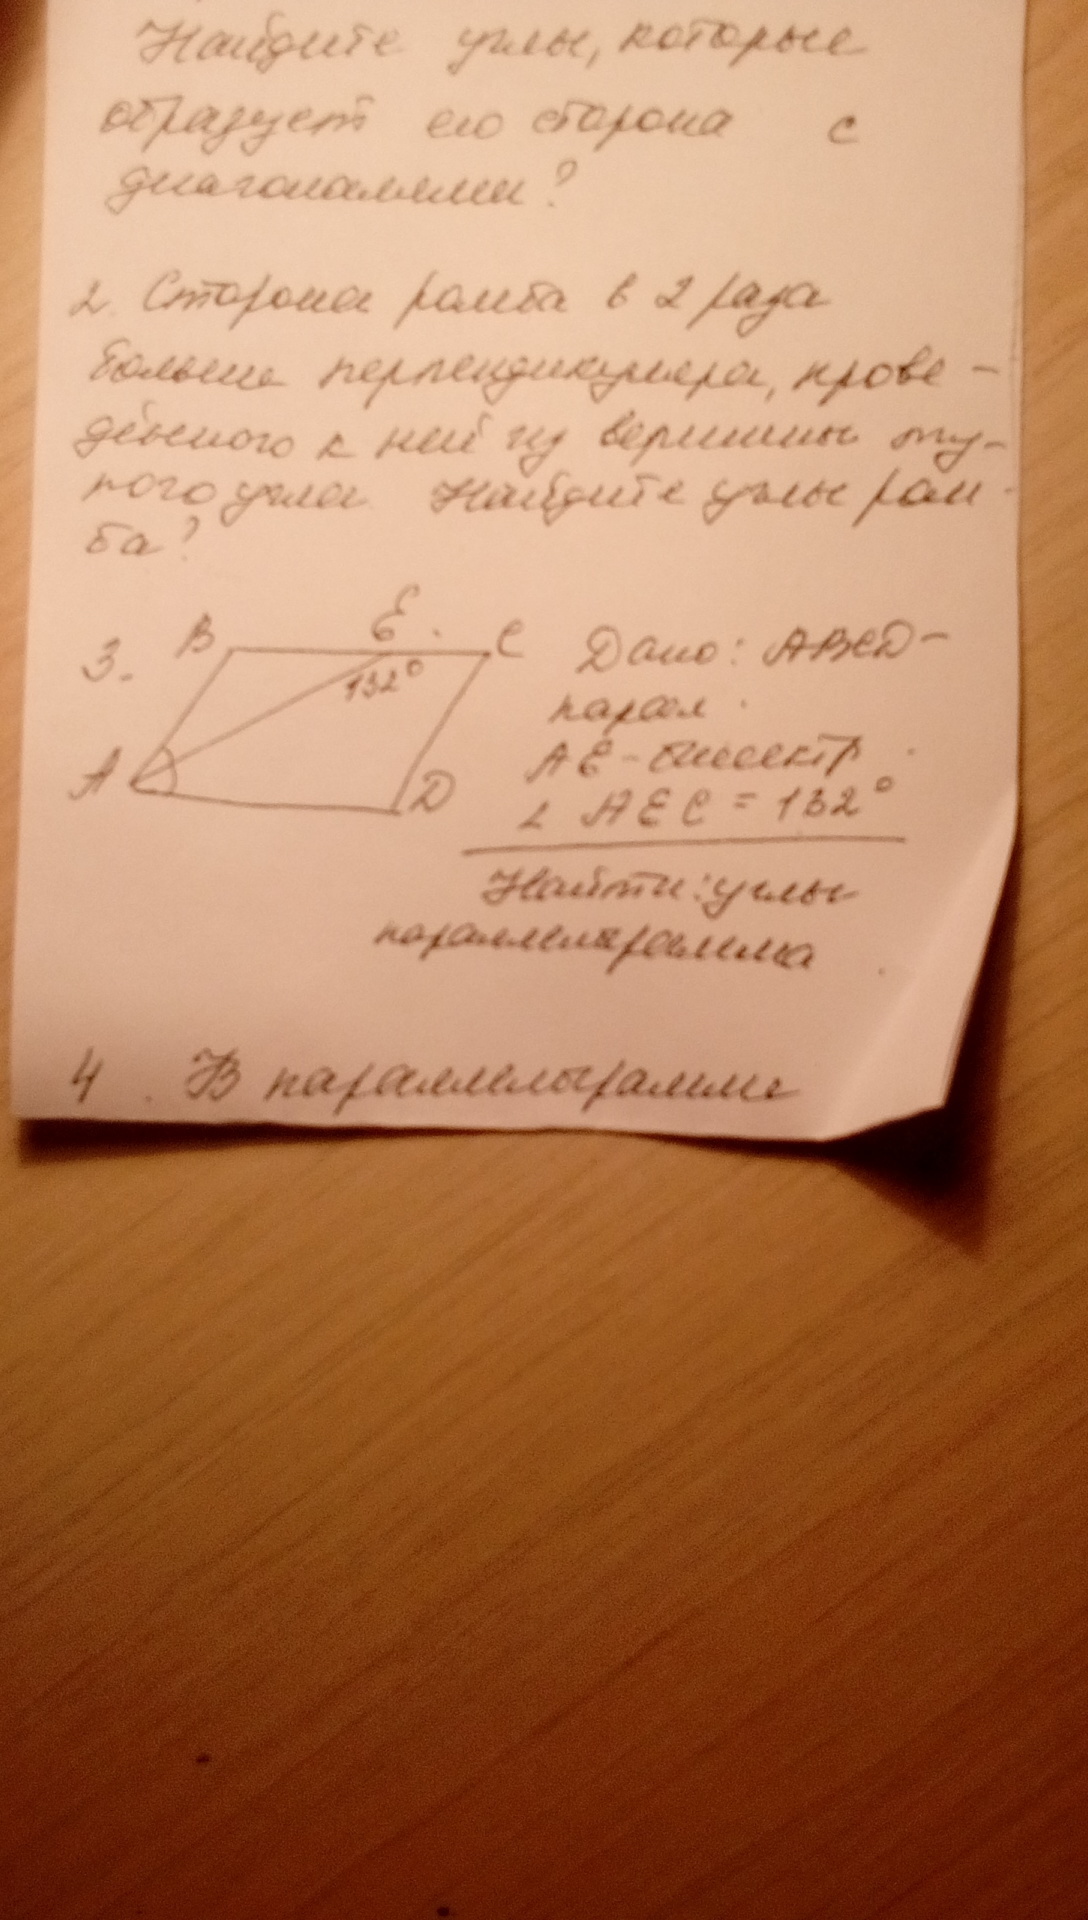 Найдите углы, которые
образует его сторона с
диагоналями?
2. Сторона ромба в 2 раза
больше перпендикуляра, прове-
дённого к ней из вершины ту-
пого угла. Найдите углы ром-
ба?
3.
B E C
132°
A D
Дано: ABCD-
парал.
AE-биссектр.
∠ AEC = 132°
Найти: углы
параллелограмма
4. В параллелограмме